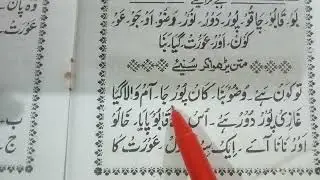 بُو، قابُو، چاقُو، پُور، دُور، وضُو، اَور، جَو، عَو
کَون، اَور، عَورت، گیا، بَنا
متن پڑھوا کر سنیے
تُو کَون ہے۔ وضُو بَنا۔ کان پُور جا۔ آم والا گیا
غازی پُور دُور ہے۔ اُس قابُو پایا۔ خالُو
اَور نانا آئے۔ ایک عَورت کا
وہ پان